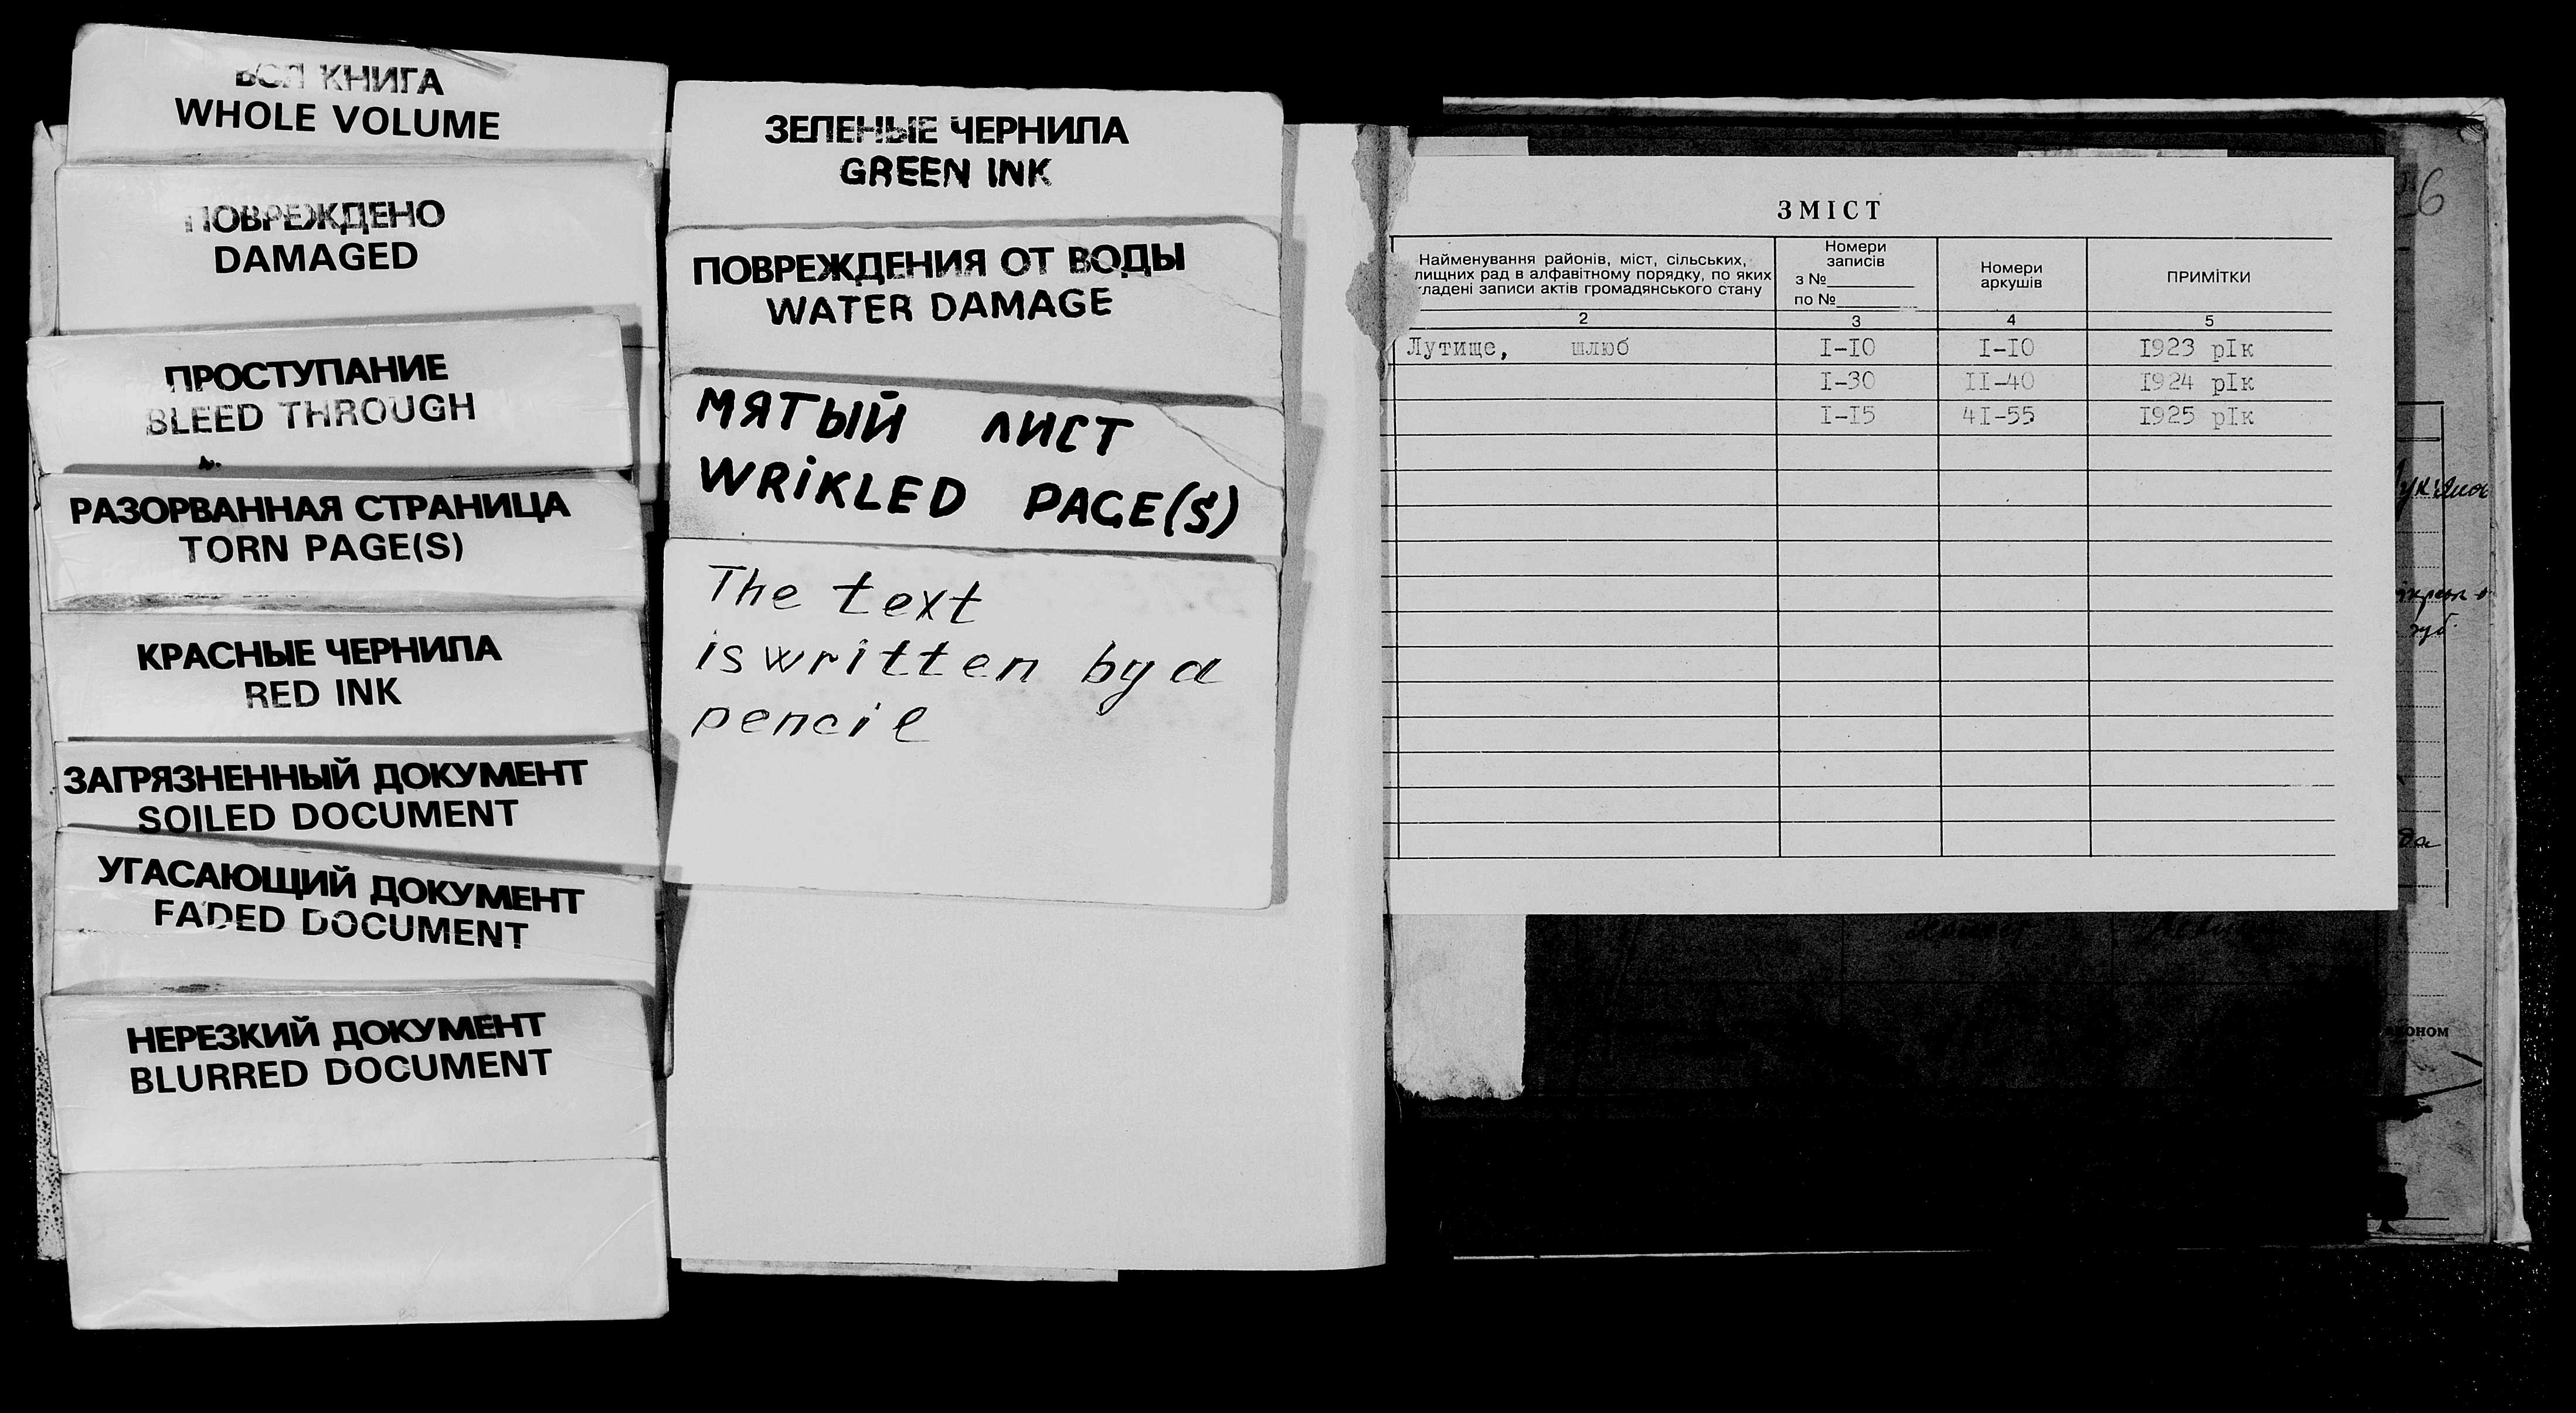 ВСЯ КНИГА
WHOLE VOLUME
ПОВРЕЖДЕНО
DAMAGED
ПРОСТУПАНИЕ
BLEED THROUGH
РАЗОРВАННАЯ СТРАНИЦА
TORN PAGE(S)
КРАСНЫЕ ЧЕРНИЛА
RED INK
ЗАГРЯЗНЕННЫЙ ДОКУМЕНТ
SOILED DOCUMENT
УГАСАЮЩИЙ ДОКУМЕНТ
FADED DOCUMENT
НЕРЕЗКИЙ ДОКУМЕНТ
BLURRED DOCUMENT
ЗЕЛЕНЫЕ ЧЕРНИЛА
GREEN INK
ПОВРЕЖДЕНИЯ ОТ ВОДЫ
WATER DAMAGE
МЯТЫЙ ЛИСТ
WRIKLED PAGE(S)
The text
is written by a
pencil
ЗМІСТ
Найменування районів, міст, сільських,
лищних рад в алфавітному порядку, по яких
кладені записи актів громадянського стану
Номери
записів
з №
по №
Номери
аркушів
ПРИМІТКИ
2 3 4 5
Лутище, шлюб I-IO I-IO I923 рIк
I-30 II-40 I924 рIк
I-I5 4I-55 I925 рIк
6